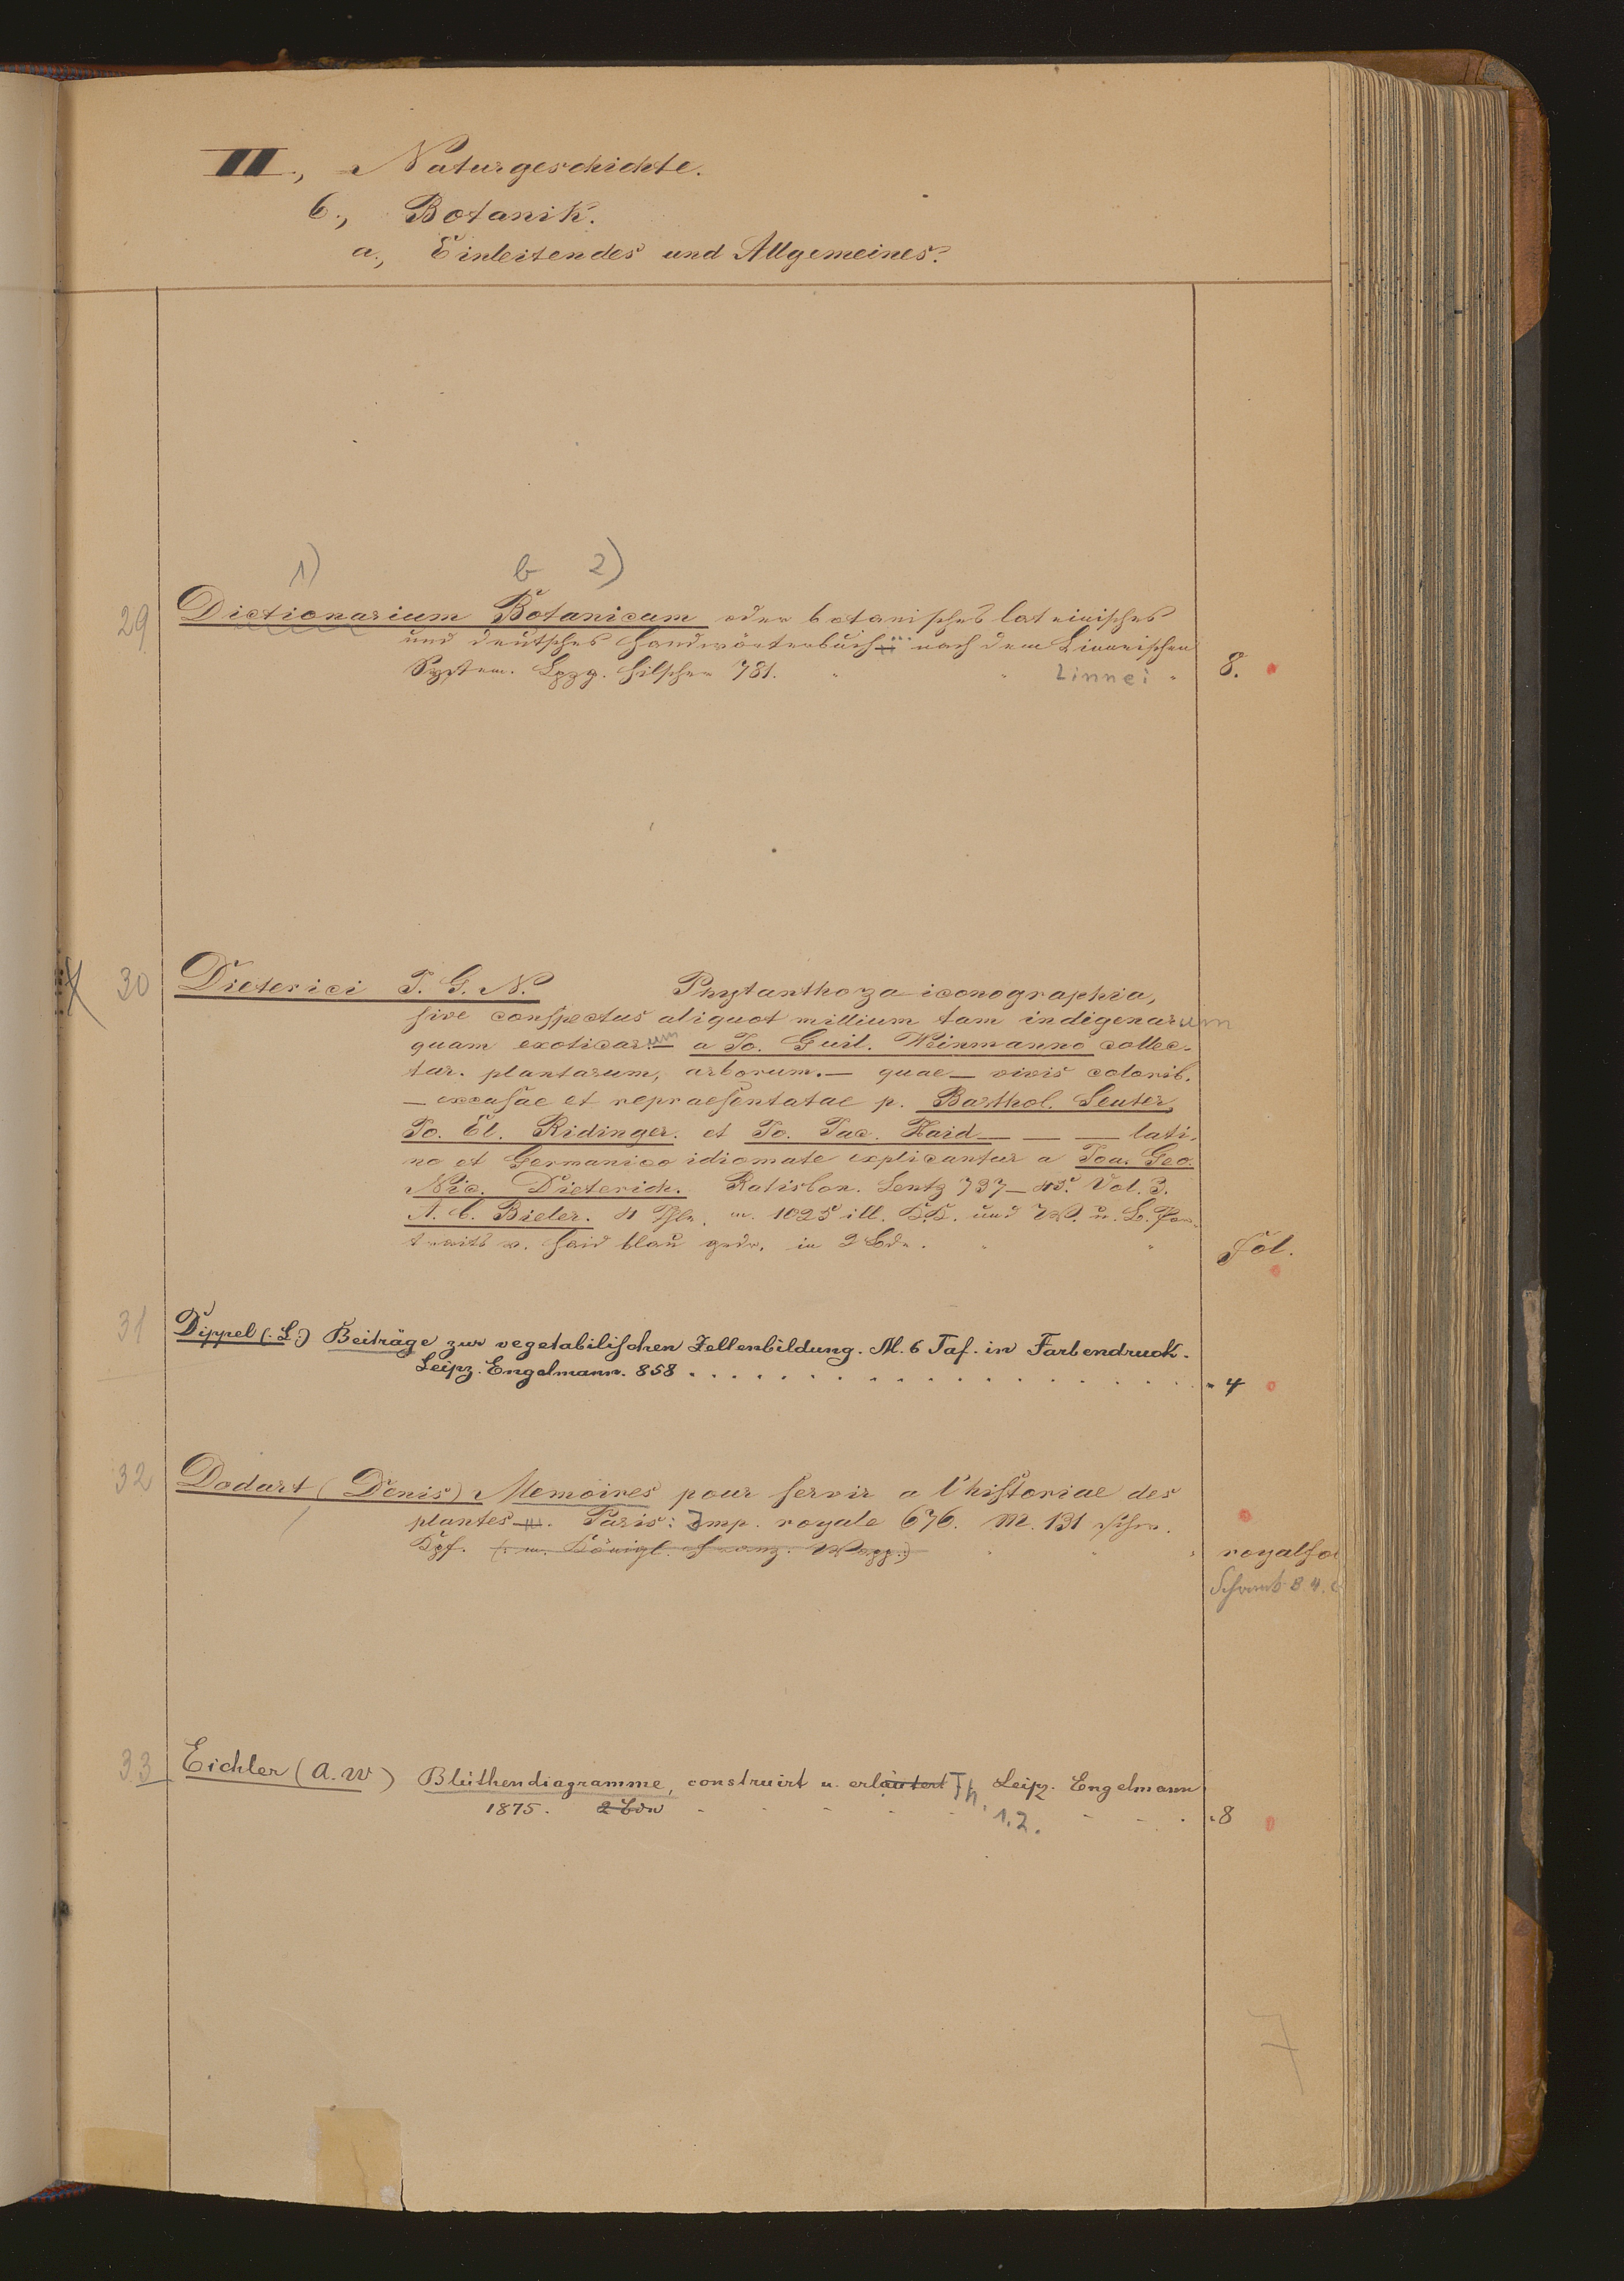 III., Naturgeschichte.
6., Botanik.
a., Einleitendes und Allgemeines.
1) b 2)
29 Dictionarium Botanicum oder botanisches lateinisches
und deutsches Handwörterbuch nach dem Linneischen
System. Lpzg. Hilscher 781. Linnei 8.
30 Dieterici J. G. N. Phytanthoza iconographia,
sive conspectus aliquot millium tam indigenarum
quam exoticarum — a Jo. Guil. Weinmanno collec-
tar. plantarum, arborum. — quae — vivis colorib.
— excusae et repraesentatae p. Barthol. Seuter,
Jo. El. Ridinger. et Jo. Jac. Haid — — — lati,
no et Germanico idiomate explicantur a Joa. Geo.
Nic. Dieterich. Ratisbon. Lentz 737–45. Vol. 3.
A. C. Bieler. 4 Thle. m. 1025 ill. KK. und W. u. B. Por-
traits v. Haid blau gedr. in 2 Bdn. Fol.
31 Dippel (: L :) Beiträge zur vegetabilischen Zellenbildung. M. 6 Taf. in Farbendruck.
Leipz. Engelmann. 858 . . . . 4
32 Dodart (Denis) Memoires pour servir a l'historiae des
plantes. Paris: Imp. royale 676. M. 131
Kpf. (: m. Königl. Franz. Wapp. :) royalfol
33 Eichler (A. W) Blüthendiagramme, construirt u. erläutert Th. Leipz. Engelmann
1875. 2 Bde 1.2. 8
7